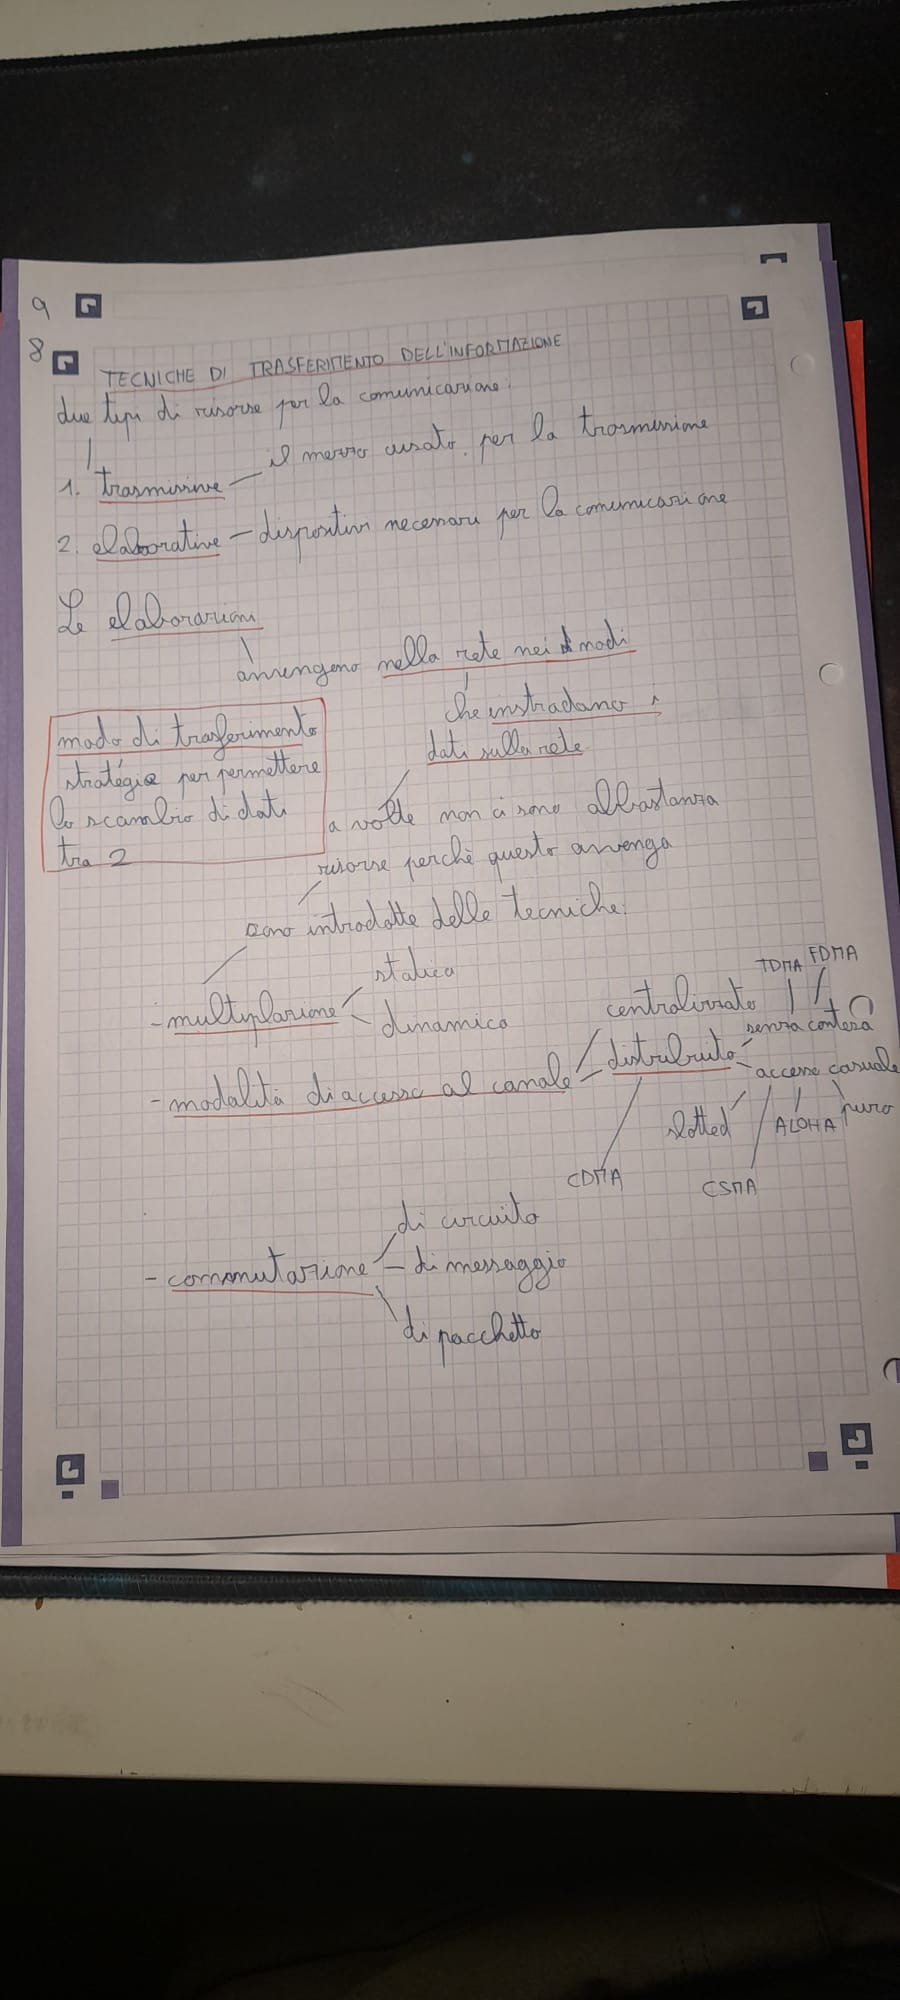 9
8
TECNICHE DI TRASFERIMENTO DELL'INFORMAZIONE
due tipi di risorse per la comunicazione:
1. trasmissive — il mezzo usato per la trasmissione
2. elaborative — dispositivi necessari per la comunicazione
Le elaborazioni
avvengono nella rete nei nodi
che instradano i
dati sulla rete
modo di trasferimento
strategie per permettere
lo scambio di dati
tra 2
a volte non ci sono abbastanza
risorse perchè questo avvenga
sono introdotte delle tecniche:
- multiplazione
statica
dinamico
- modalità di accesso al canale
centralizzato
distribuito
TDMA FDMA
senza contesa
accesso casuale
slotted
ALOHA
puro
CDMA
CSMA
- commutazione
di circuito
di messaggio
di pacchetto